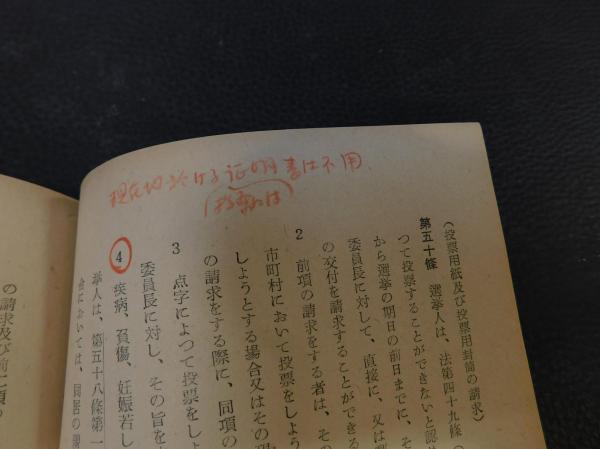 現在地に於ける証明書は不用
(投票用紙及び投票用封筒の請求)
第五十條 選挙人は、法第四十九條(
つて投票することができないと認め
から選挙の期日の前日までに、そ
委員長に対して、直接に、又は
の交付を請求することができる
2 前項の請求をする者は、その
市町村において投票をしよう
しようとする場合又はその現
の請求をする際に、同項の
3 点字によつて投票をしよ
委員長に対し、その旨を
4 疾病、負傷、妊娠若し
挙人は、第五十八條第一
会においては、同居の親
の請求及び前二項の